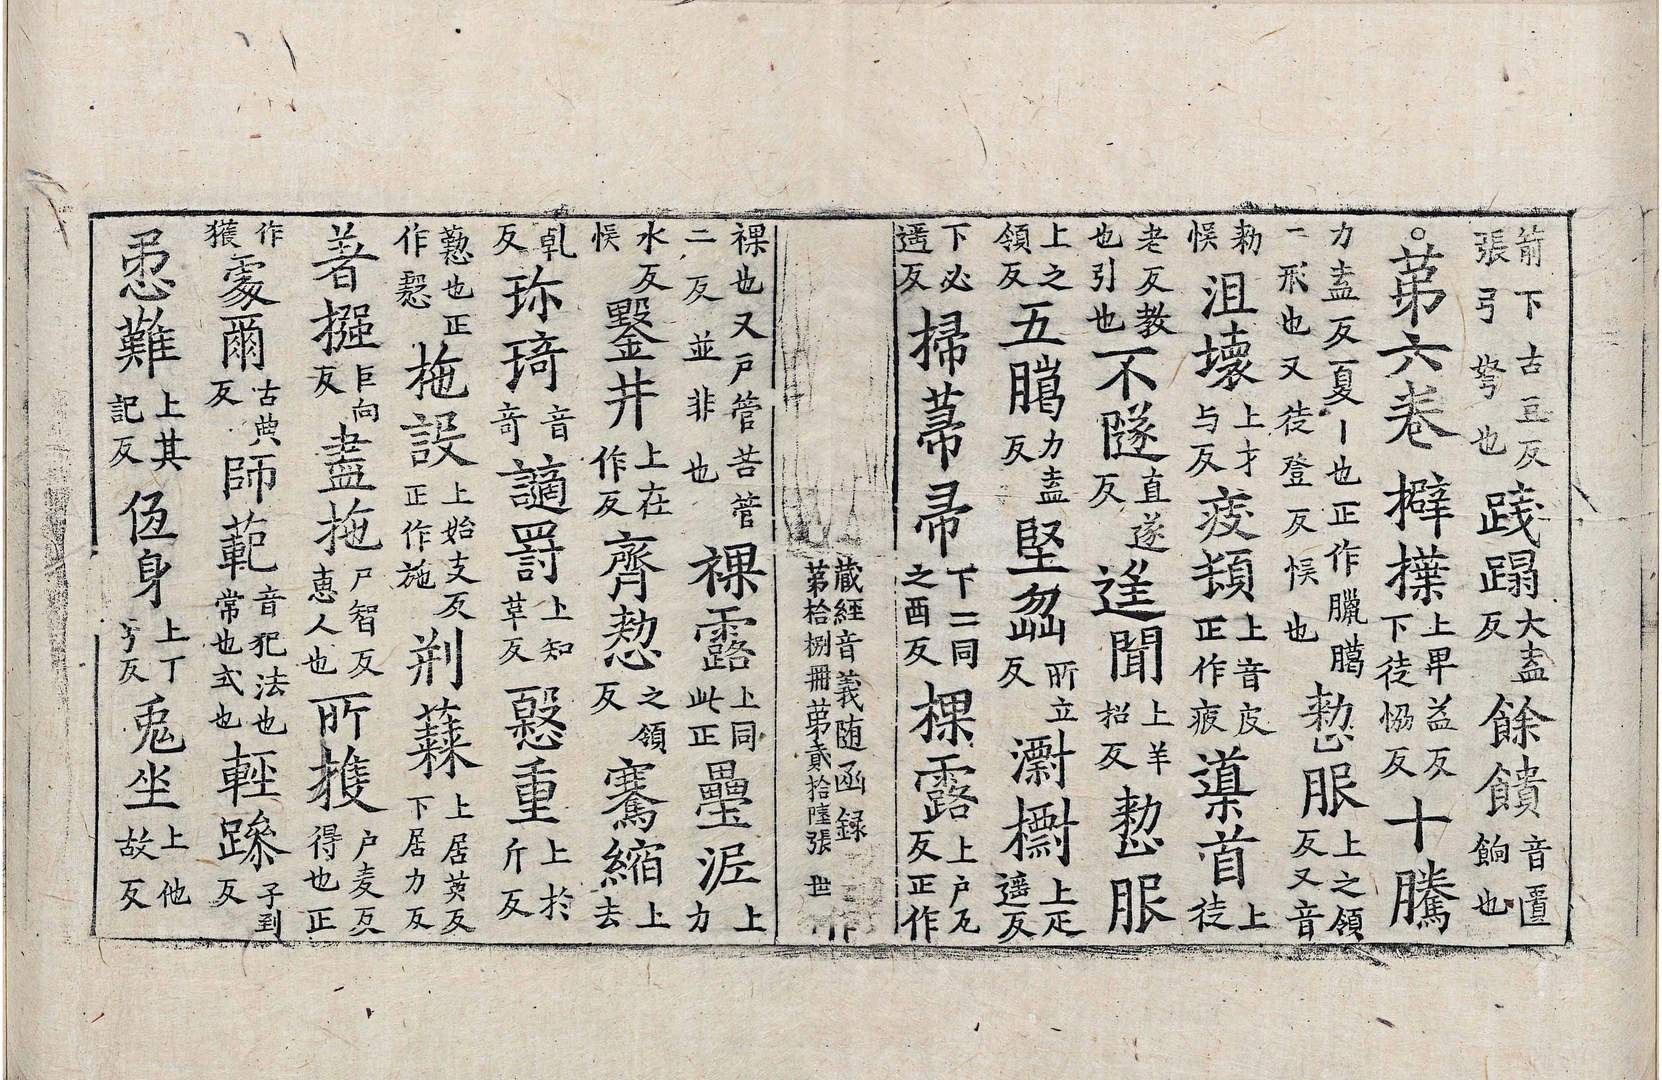 箭下古豆反張弓弩也踐蹋大盍反餘饋音匱餉也
第六卷擗擛上毘益反下徒惱反十騰
力盍反夏丨也正作臘臈一形也又徒登反悮也懃服上之領反又音
勑悮沮壞上才与反疲頬上音皮正作疲導首上徒
老反教也引也不隧直遂反逬聞上羊招反懃服
上之領反五臈力盍反堅㔽所立反瀏櫥上疋遥反
下必遥反掃菷帚下二同之酉反棵露上户瓦反正作
藏經音義随函録
第拾捌冊第貳拾陸張 世
裸也又戸管苦管二反並非也裸露上同此正壘泥上力
水反悮鑿井上在作反齊懃之領反騫縮上去
乹反珎琦音竒謫罰上知革反慇重上於斤反
懃也正作懇柂設上始支反正作施荊蕀上居英反下居力反
著摾巨向反盡拖尸智反惠人也所擭户麦反得也正
作獲䝉爾古典反師範音犯法也常也式也輕躁子到反
恿難上其記反侸身上丁兮反兎坐上他故反